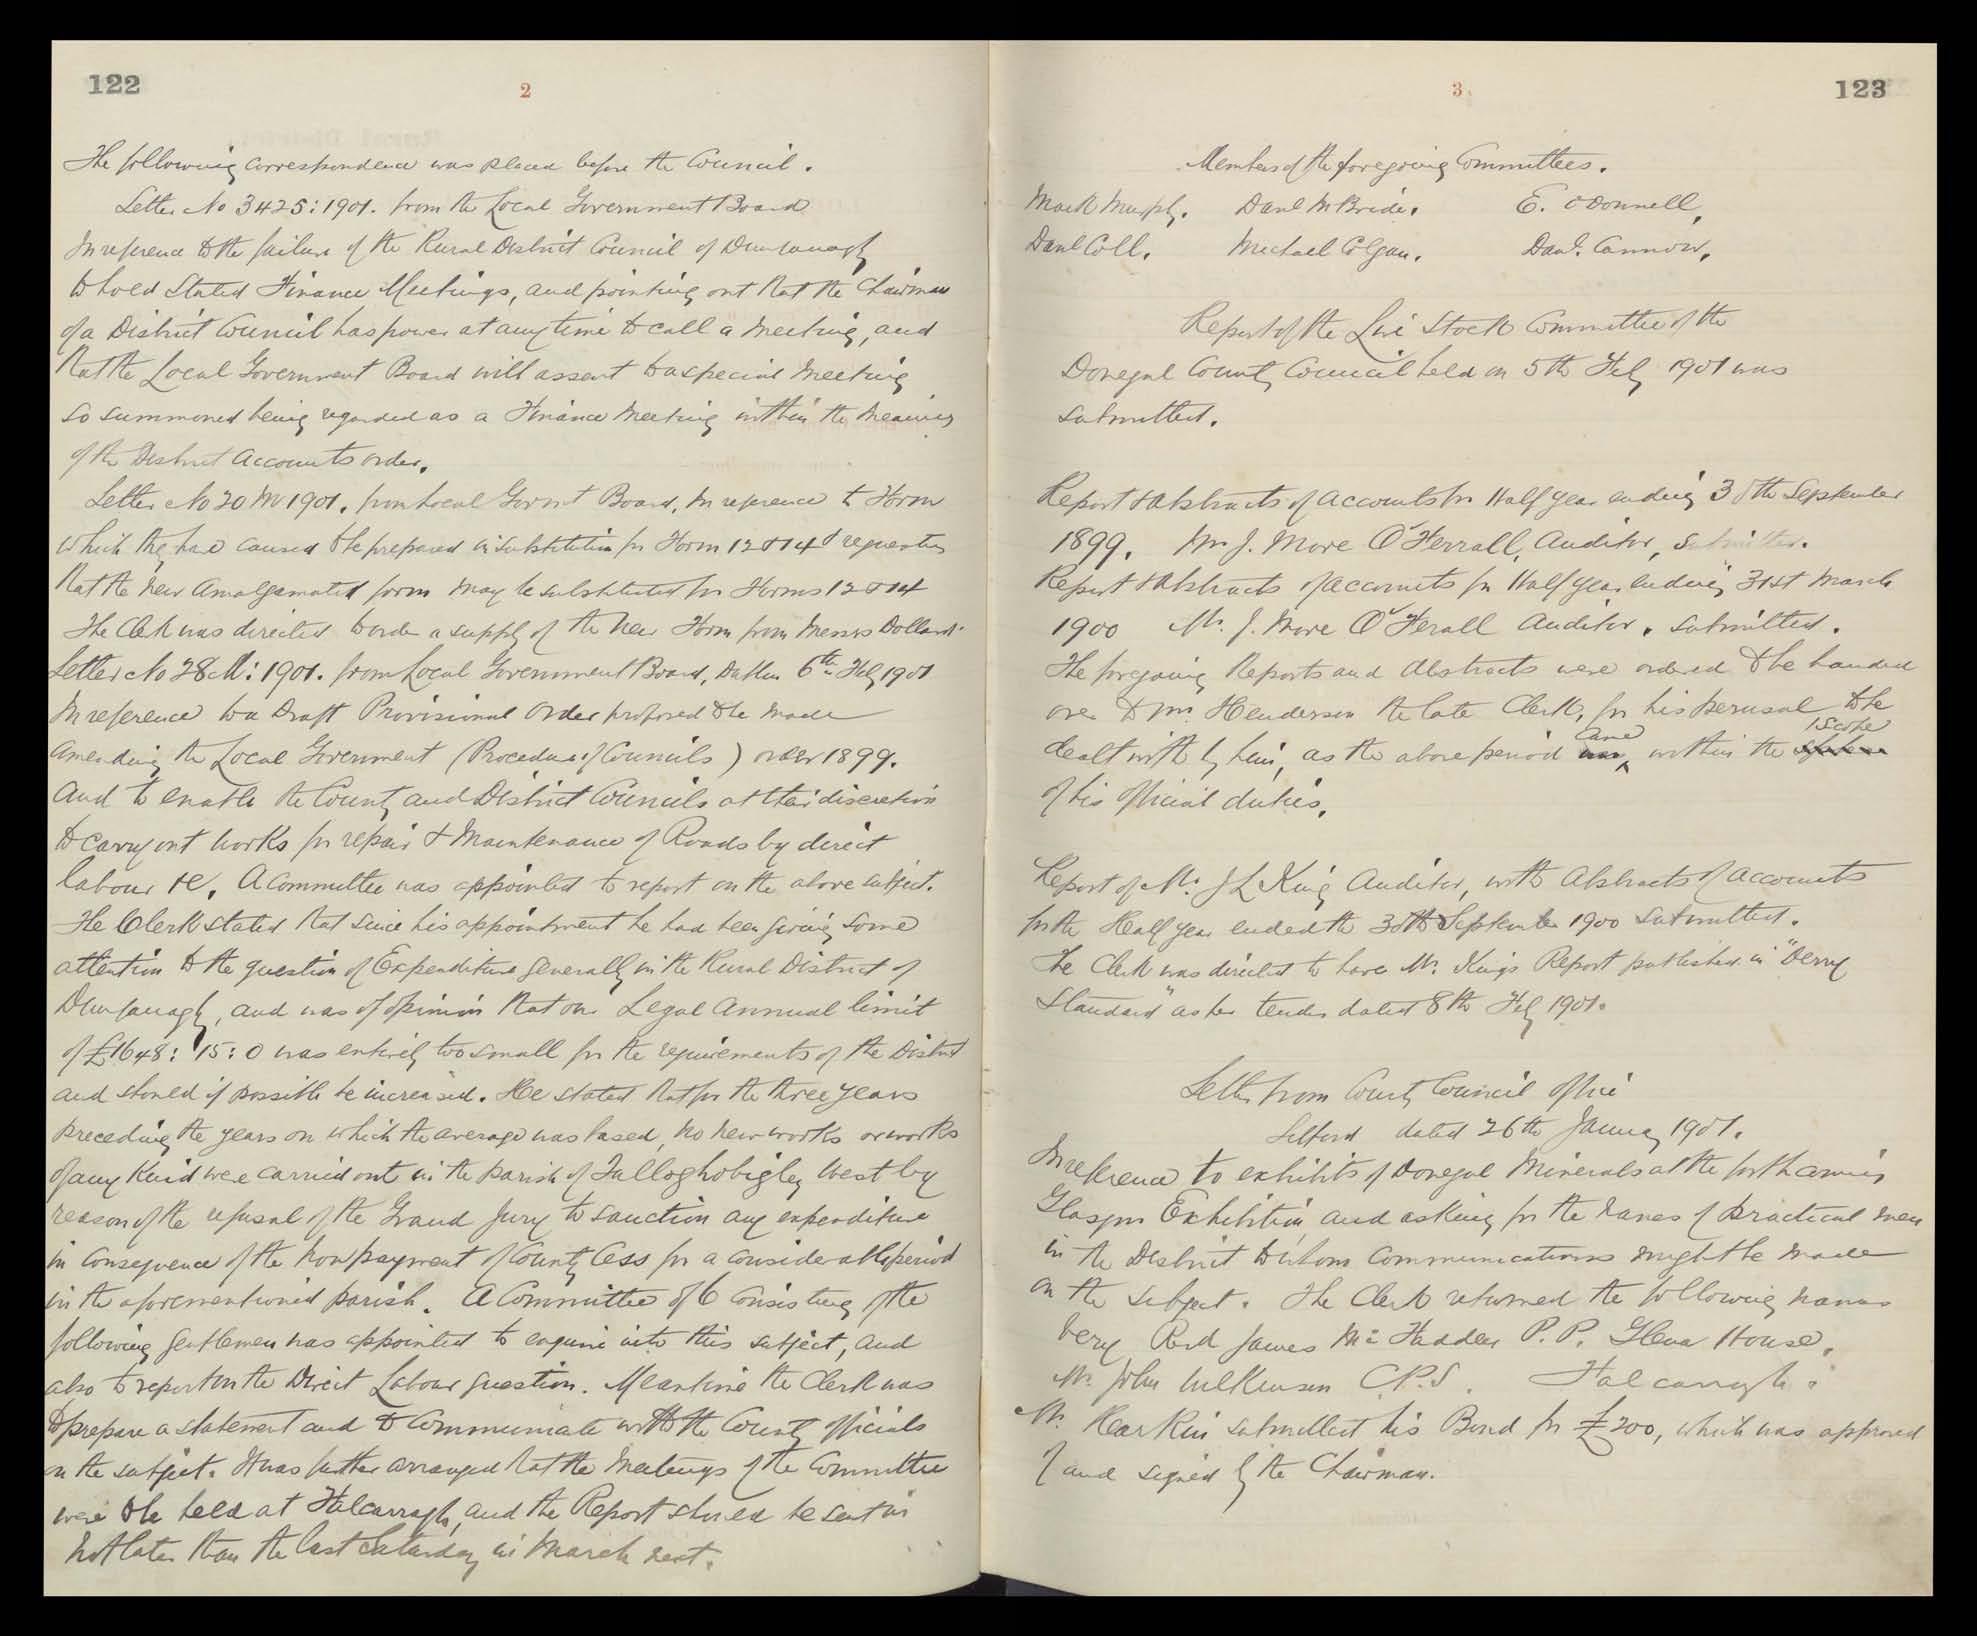 122
2
The following correspondence was placed before the Council.
Letter No 3425:1901. from the Local Government Board
In reference to the failure of the Rural District Council of Dunfanaghy
to hold Stated Finance Meetings, and pointing out that the Chairman
of a District Council has power at any time to call a Meeting, and
that the Local Government Board will assent to a special Meeting
so summoned being regarded as a Finance Meeting within the Meaning
of the District Accounts order.
Letter No 20 M 1901. from Local Govrnt Board, In reference to Form
which they have caused to be prepared in substitution for Form 12 & 14 & requesting
that the New Amalgamated form may be substituted for Forms 12 & 14
The Clerk was directed to order a supply of the New Form from Messrs Dollard.
Letter No 28 M:1901. from Local Government Board, Dublin 6th Feby 1901
In reference to a Draft Provisional Order proposed to be made
Amending the Local Government (Procedure of Councils) order 1899.
And to enable the County and District Councils at their discretion
to carry out works for repair & Maintenance of Roads by direct
labour &c. A Committee was appointed to report on the above subject.
The Clerk stated that since his appointment he had been giving some
attention to the question of Expenditure generally in the Rural District of
Dunfanaghy, and was of opinion that our Legal Annual limit
of £1648:15:0 was entirely too small for the requirements of the District
and should if possible be increased. He stated that for the three years
preceding the years on which the average was based, No new works or works
of any Kind were carried out in the parish of Tulloghobigley West by
reason of the refusal of the Grand Jury to sanction any expenditure
in consequence of the non payment of County Cess for a considerable period
in the aforementioned parish. A Committee of 6 Consisting of the
following gentlemen was appointed to enquire into this subject, and
also to report on the Direct Labour question. Meantime the Clerk was
to prepare a statement and to Communicate with the County officials
on the subject. It was further arranged that the Meetings of the Committee
were to be held at Falcarragh, and the Report should be sent in
not later than the last Saturday in March next.
3
123
Members of the foregoing Committees.
Mark Murphy. Danl McBride. E. O'Donnell,
Danl Coll. Michael Colgan. Danl. Cannon.
Report of the Live Stock Committee of the
Donegal County Council held on 5th Feby 1901 was
submitted.
Report & Abstracts of Accounts for Half year ending 30th September
1899. Mr J. More O'Ferrall, Auditor, Submitted.
Report & Abstracts of accounts for Half year ending 31st March
1900 Mr. J. More O'Ferall Auditor. submitted.
The foregoing Reports and Abstracts were ordered to be handed
over to Mr. Henderson the late Clerk, for his perusal to be
dealt with by him, as the above period was came within the scope
of his official duties.
Report of Mr. J L King Auditor, with Abstracts of Accounts
for the Half year ended the 30th September 1900 submitted.
The Clerk was directed to have Mr. King's Report published in "Derry
Standard" as per tender dated 8th Feby 1901.
Letter from County Council Office
Lifford dated 26th January 1901.
In reference to exhibits of Donegal Minerals at the forthcoming
Glasgow Exhibition, and asking for the names of practical men
in the District to whom Communications might be made
on the subject. The Clerk returned the following names
Very Revd James McFadden P.P. Glena House.
Mr. John Wilkinson C.P.S. Falcarragh.
Mr. Harkin submitted his Bond for £200, which was approved
of and signed by the Chairman.